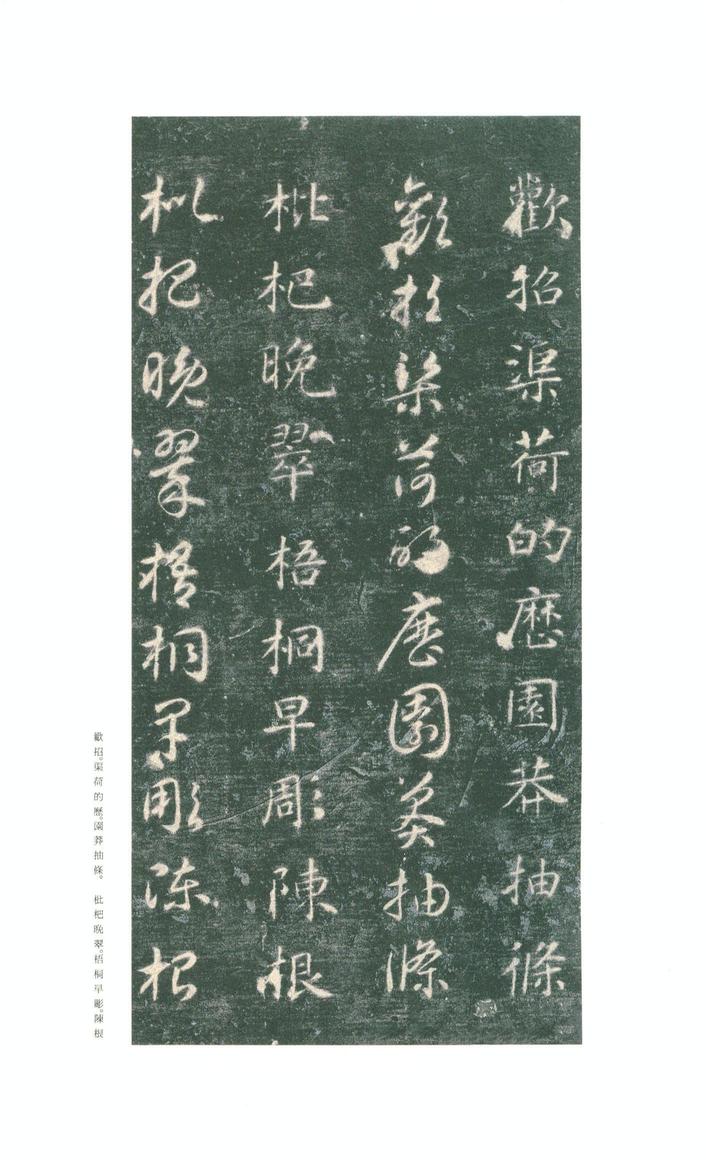 歡招渠荷的歷園莽抽條
歡招渠荷的歷園莽抽條
枇杷晚翠梧桐早彫陳根
枇杷晚翠梧桐早彫陳根
歡招。渠荷的歷。園莽抽條。 枇杷晚翠。梧桐早彫。陳根